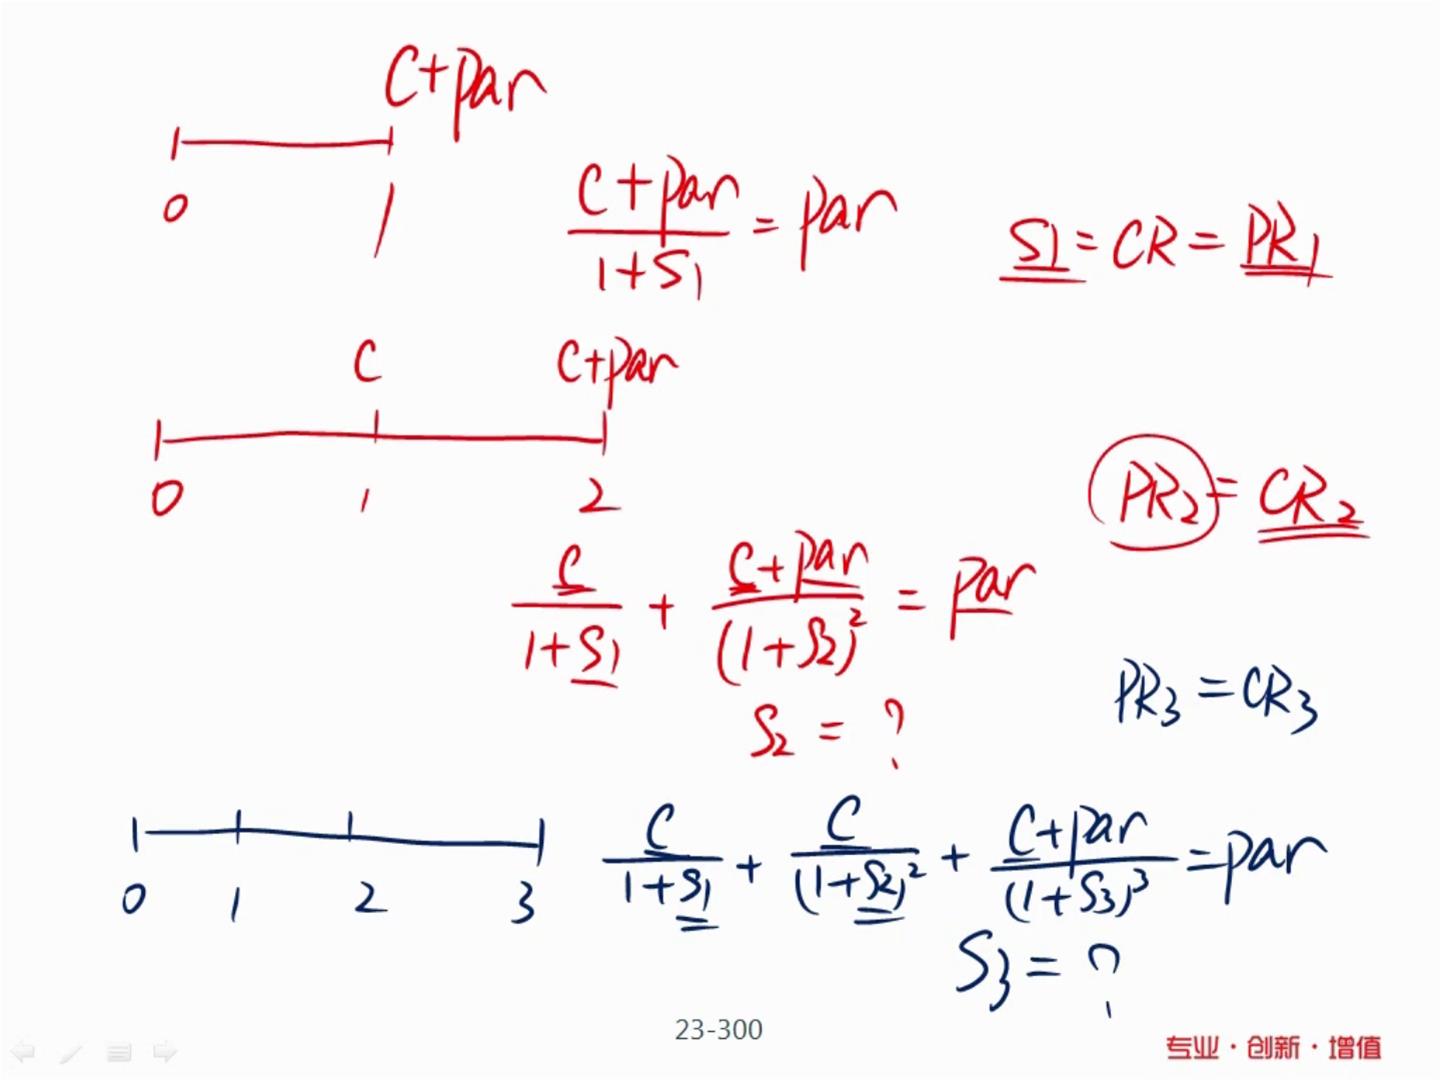 C+par
0 1
C+par / 1+S1 = par
S1 = CR = PR1
C C+par
0 1 2
PR2 = CR2
C / 1+S1 + C+par / (1+S2)² = par
S2 = ?
PR3 = CR3
0 1 2 3
C / 1+S1 + C / (1+S2)² + C+par / (1+S3)³ = par
S3 = ?
23-300
专业·创新·增值